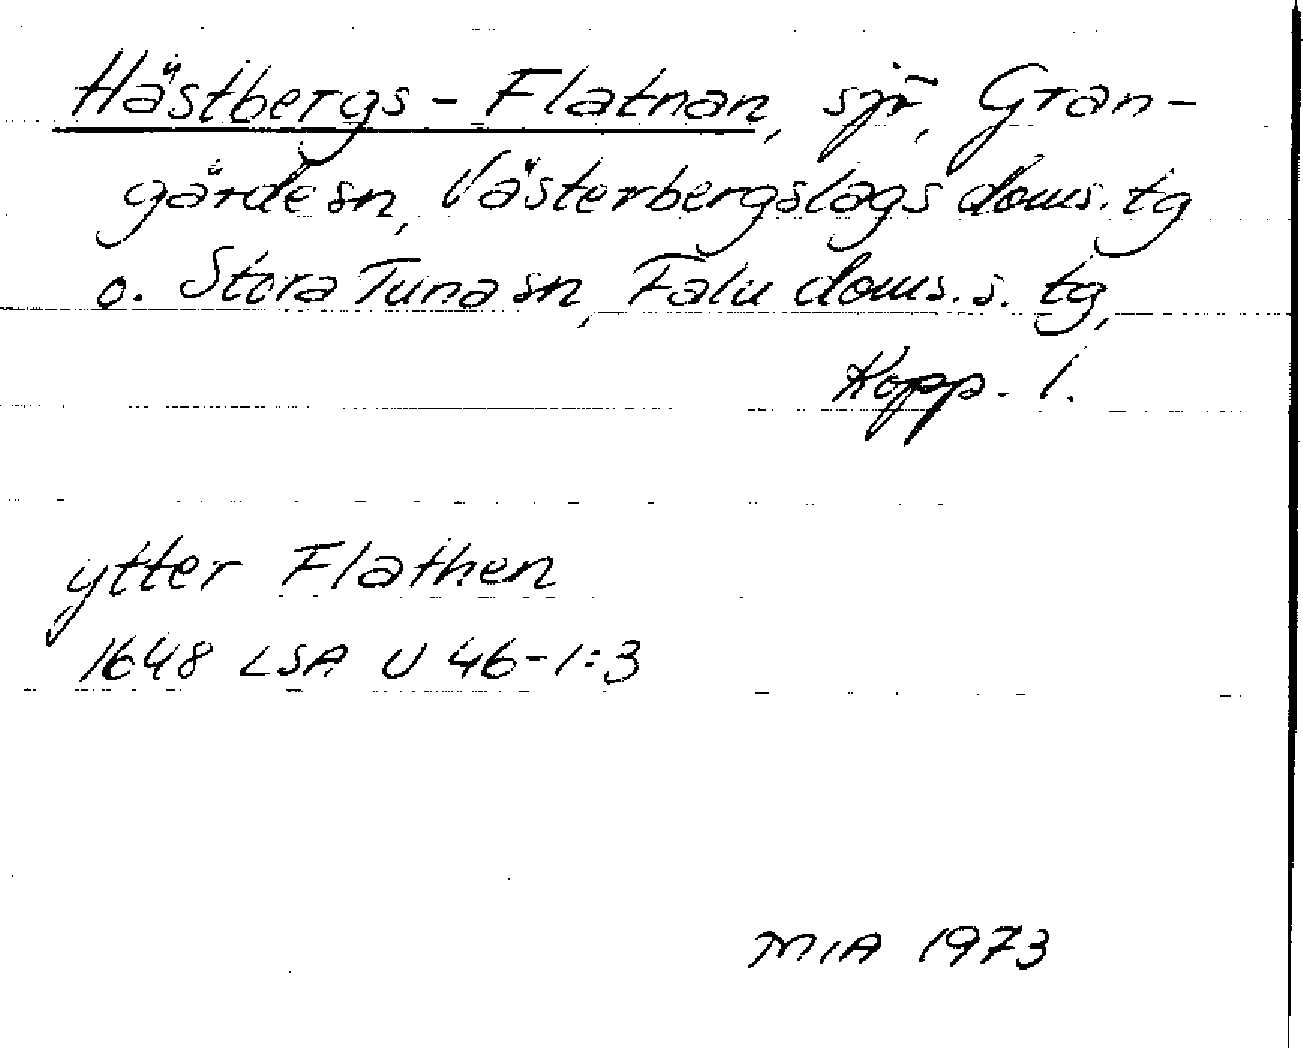 Hästbergs-Flatnan, sjö, Gran-
gärde sn, Västerbergslags doms. tg
o. Stora Tuna sn, Falu doms. s. tg,
Kopp. l.
ytter Flathen
1648 LSA U 46-1:3
MIA 1973